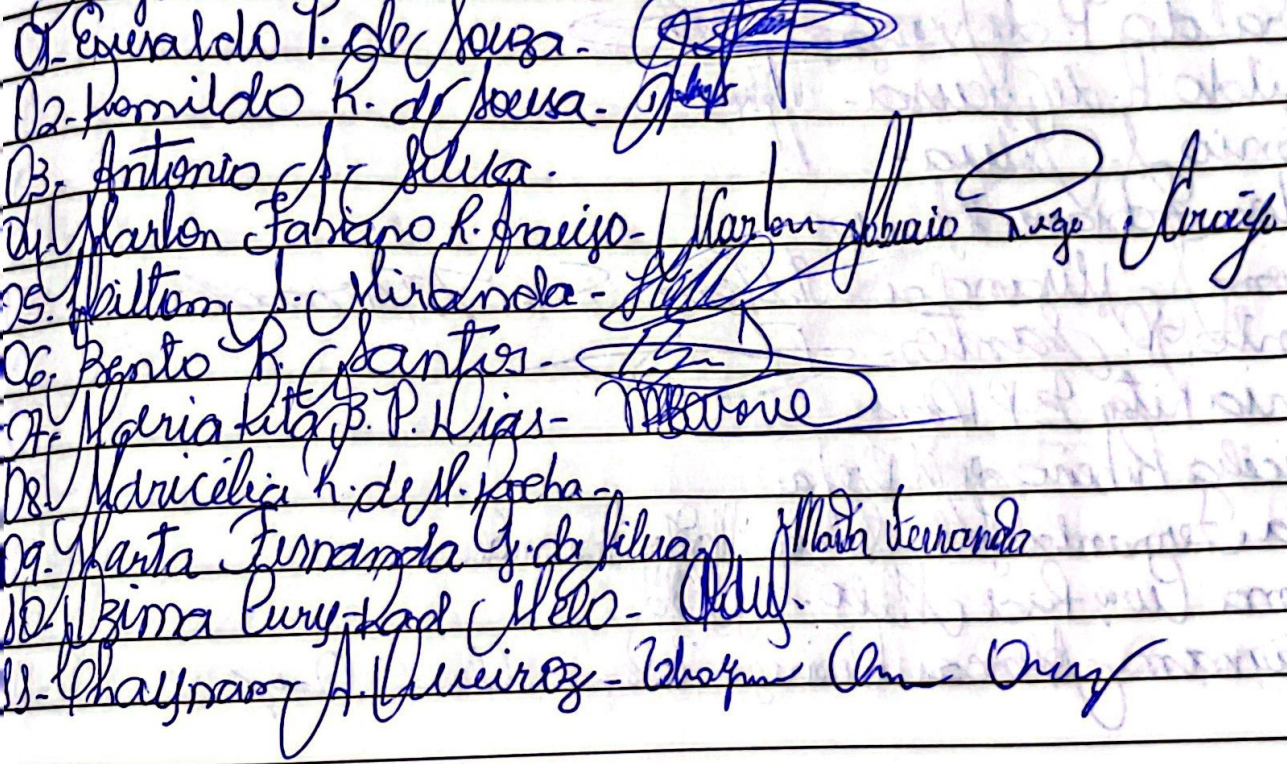 01- Esuraldo P. de Souza-
02- Romildo R. de Sousa-
03. Antonio A. Silva.
04. Marlon Fabiano R. Araujo- Marlon Fabiano Rego Araújo
05. Hilton S. Miranda-
06. Bento R. Santos-
07. Maria Rita B. P. Dias-
08. Maricélia R. de M. Rocha-
09. Marta Fernanda G. da Silva Marta Fernanda
10. Cury Melo-
11- Queiroz-